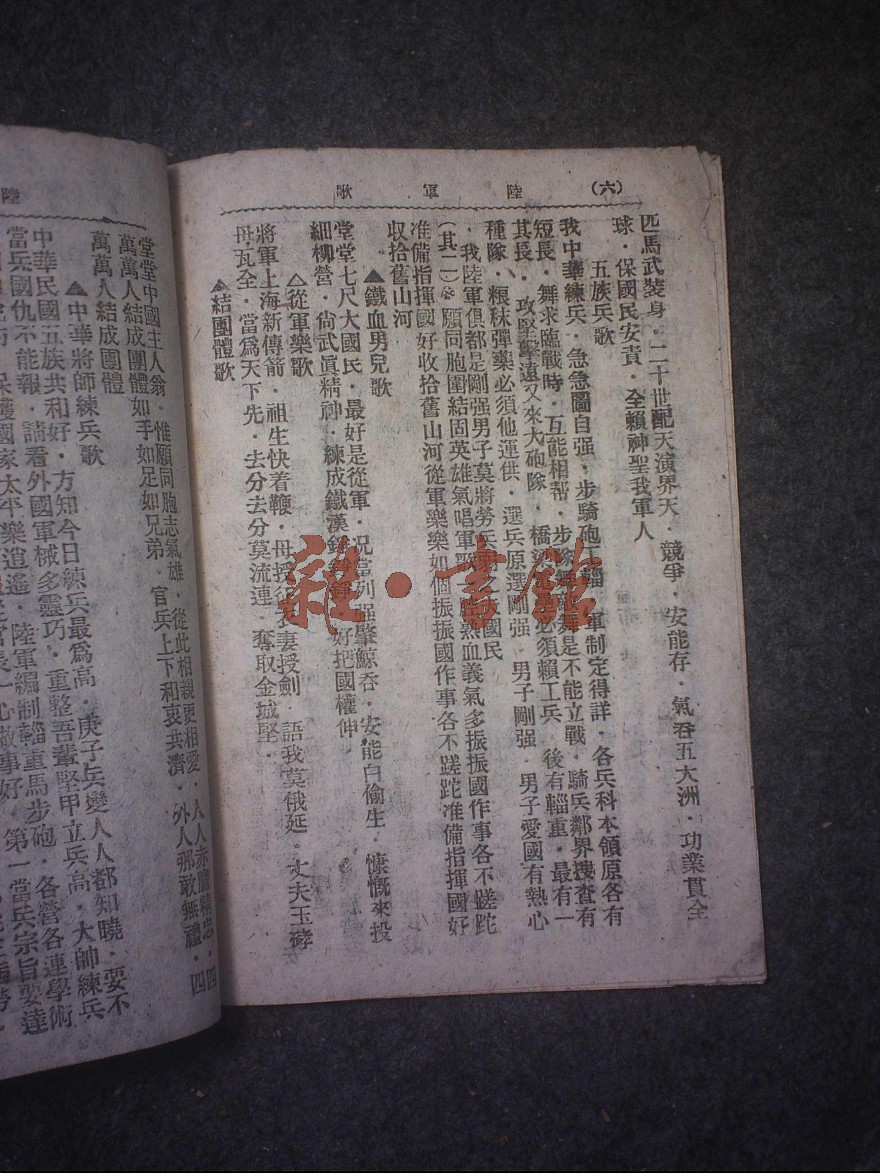 陸軍歌 (六)
匹馬武裝身．二十世配天演界天．競爭．安能存．氣吞五大洲．功業貫全
球．保國民安責．全賴神聖我軍人
五族兵歌
我中華練兵．急急圖自强．步騎砲工輜 軍制定得詳．各兵科本領原各有
短長．舞求臨戰時．互能相幫．步 是不能立戰．騎兵鄰界搜查有
其長．攻堅擊遠又來大砲隊．橋 必須賴工兵 後有輜重．最有一
種隊．粮秣彈藥必須他運供．選兵原選剛强．男子剛强．男子愛國有熱心
．我陸軍俱都是剛强男子莫將勞兵 國民
(其二) 願同胞團結固英雄氣唱軍歌 腔熱血義氣多振振國作事各不蹉跎
准備指揮國好收拾舊山河從軍樂樂如個振振國作事各不蹉跎准備指揮國好
收拾舊山河
▲鐵血男兒歌
堂堂七尺大國民．最好是從軍．况當列强肇鯨吞．安能白偷生．慷慨來投
細柳營．尙武眞精神．練成鐵漢 好把國權伸．
△從軍樂歌
將軍上海新傳箭．祖生快着鞭．母授 妻授劍．語我莫俄延．丈夫玉碎
母瓦全．當爲天下先．去分去分莫流連．奪取金城堅．
▲結團體歌
陸
堂堂中國主人翁．惟願同胞志氣雄．從此相親更相愛．人人赤膽精忠．四
萬萬人結成團體如手如足如兄弟．官兵上下和衷共濟．外人那敢無禮．四
萬萬人結成團體
▲中華將師練兵歌
中華民國五族共和好．方知今日練兵最爲高．庚子兵變人人都知曉．要不
當兵國仇不能報．請看外國軍械多靈巧．重整吾輩堅甲立兵高．大帥練兵
保護國家太平樂逍遙．陸軍編制輜重馬步砲．各營各連學術
官長一心做事好．第一當兵宗旨要達
雜·書館